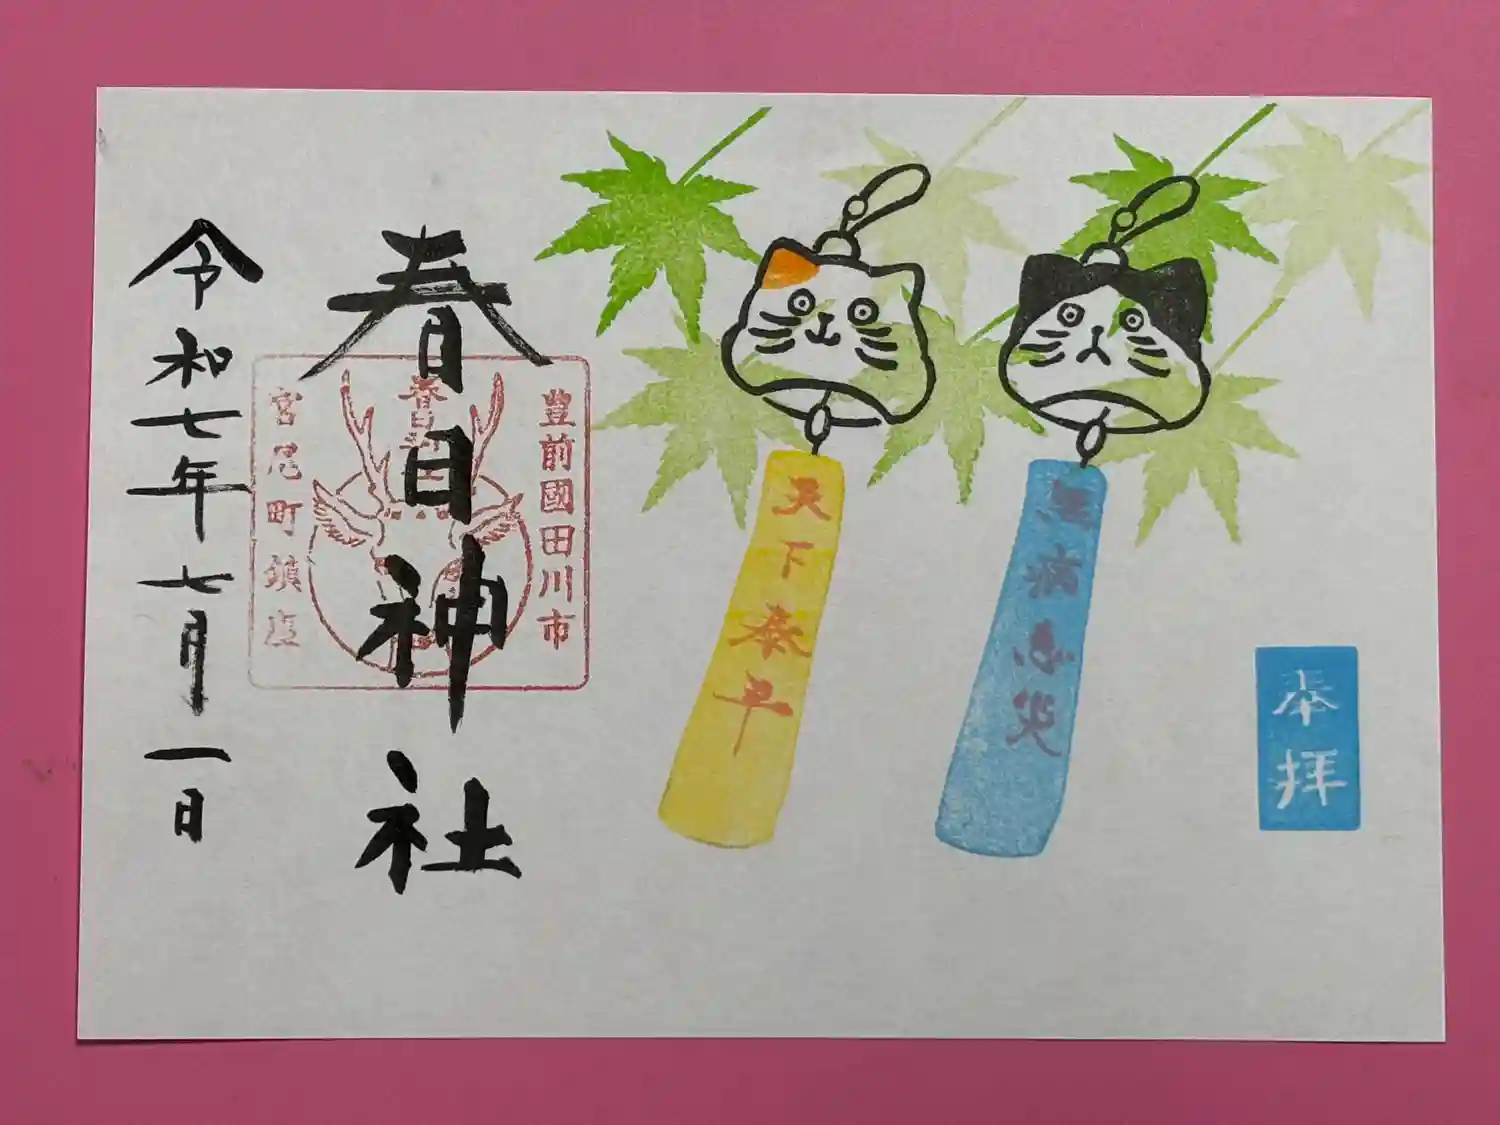 奉拝
無病息災
天下泰平
豊前國田川市
春日神社
宮尾町鎮座
令和七年七月一日